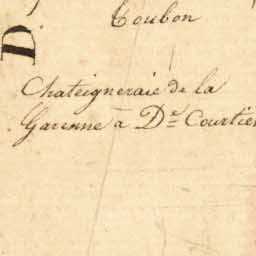 Coubon
D
Chateigneraie de la
Garenne a De Courtie